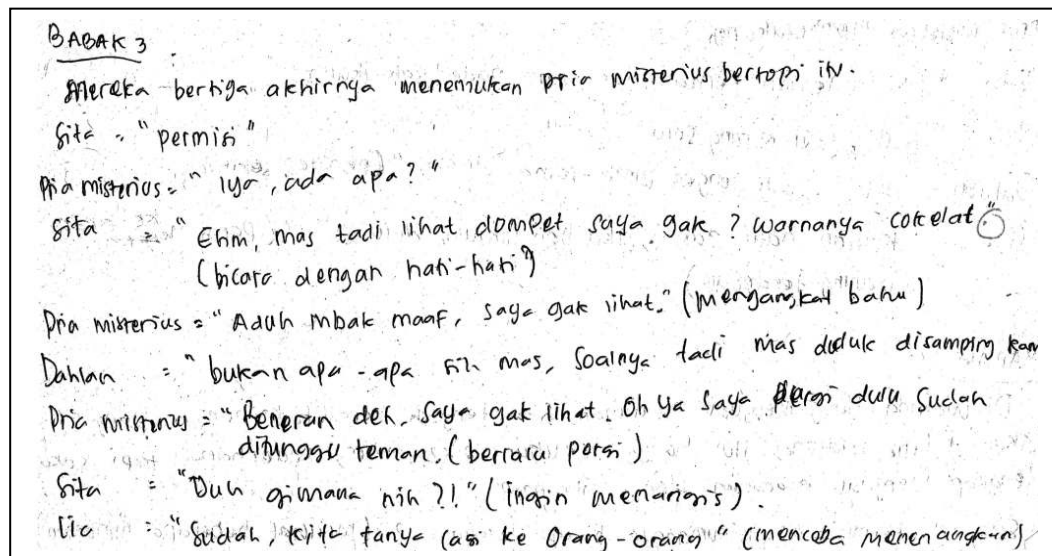 BABAK 3
Mereka bertiga akhirnya menemukan pria misterius bertopi itu.
Sita = "permisi"
Pria misterius = "Iya, ada apa?"
Sita = "Ehm, mas tadi lihat dompet saya gak? Warnanya cokelat"
(bicara dengan hati-hati)
Pria misterius = "Aduh mbak maaf, saya gak lihat." (mengangkat bahu)
Dahlan = "bukan apa-apa sih mas, Soalnya tadi mas duduk disamping kam
Pria misterius = "Beneran deh. Saya gak lihat. Oh ya saya pergi dulu sudah
ditunggu teman. (berlalu pergi)
Sita = "Duh gimana nih?!" (ingin menangis).
Lia = "Sudah, kita tanya lagi ke Orang-orang" (mencoba menenangkan)